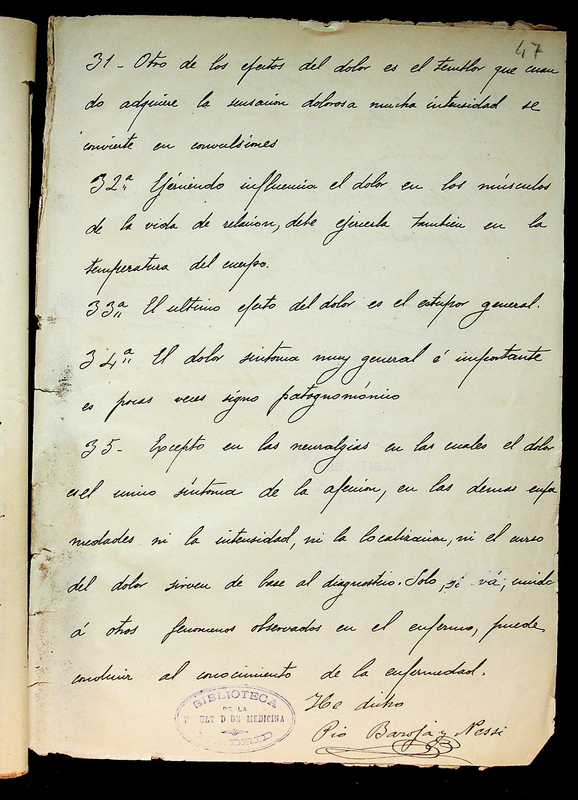 47
31 - Otro de los efectos del dolor es el temblor que cuan
do adquiere la sensacion dolorosa mucha intensidad se
convierte en convulsiones
32ª Ejerciendo influencia el dolor en los músculos
de la vida de relacion, debe ejercerla tambien en la
temperatura del cuerpo.
33ª El ultimo efecto del dolor es el estupor general.
34ª El dolor sintoma muy general é importante
es pocas veces signo patognomónico
35 - Excepto en las neuralgias en las cuales el dolor
es el unico síntoma de la afeccion, en las demas enfer
medades ni la intensidad, ni la localizacion, ni el curso
del dolor sirven de base al diagnostico. Solo, si vá, unido
á otros fenomenos observados en el enfermo, puede
conducir al conocimiento de la enfermedad.
He dicho
Pio Baroja y Nessi
BIBLIOTECA
DE LA
F ULT D DE MEDICINA